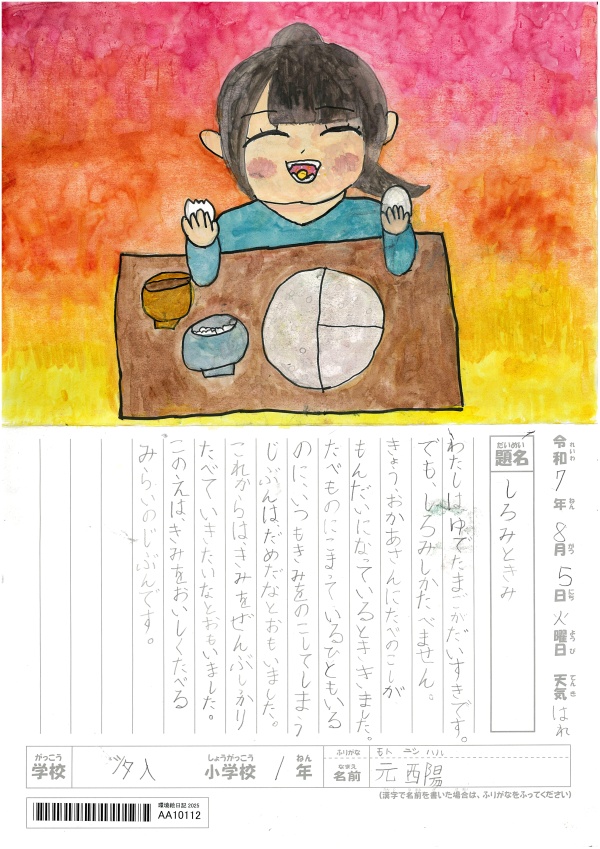 令和7年8月5日火曜日 天気はれ
れいわ ねん がつ にち ようび てんき
題名 しろみときみ
だいめい
わたしは、ゆでたまごがだいすきです。
でも、しろみしかたべません。
きょう、おかあさんにたべのこしが
もんだいになっているとききました。
たべものにこまっているひともいる
のに、いつもきみをのこしてしまう
じぶんはだめだなとおもいました。
これからは、きみをぜんぶしっかり
たべていきたいなとおもいました。
このえは、きみをおいしくたべる
みらいのじぶんです。
がっこう しょうがっこう ねん ふりがな モト ニシ ハル
学校 汐入 小学校 1年 名前 元 西陽
なまえ
(漢字で名前を書いた場合は、ふりがなをふってください)
環境絵日記 2025
AA10112